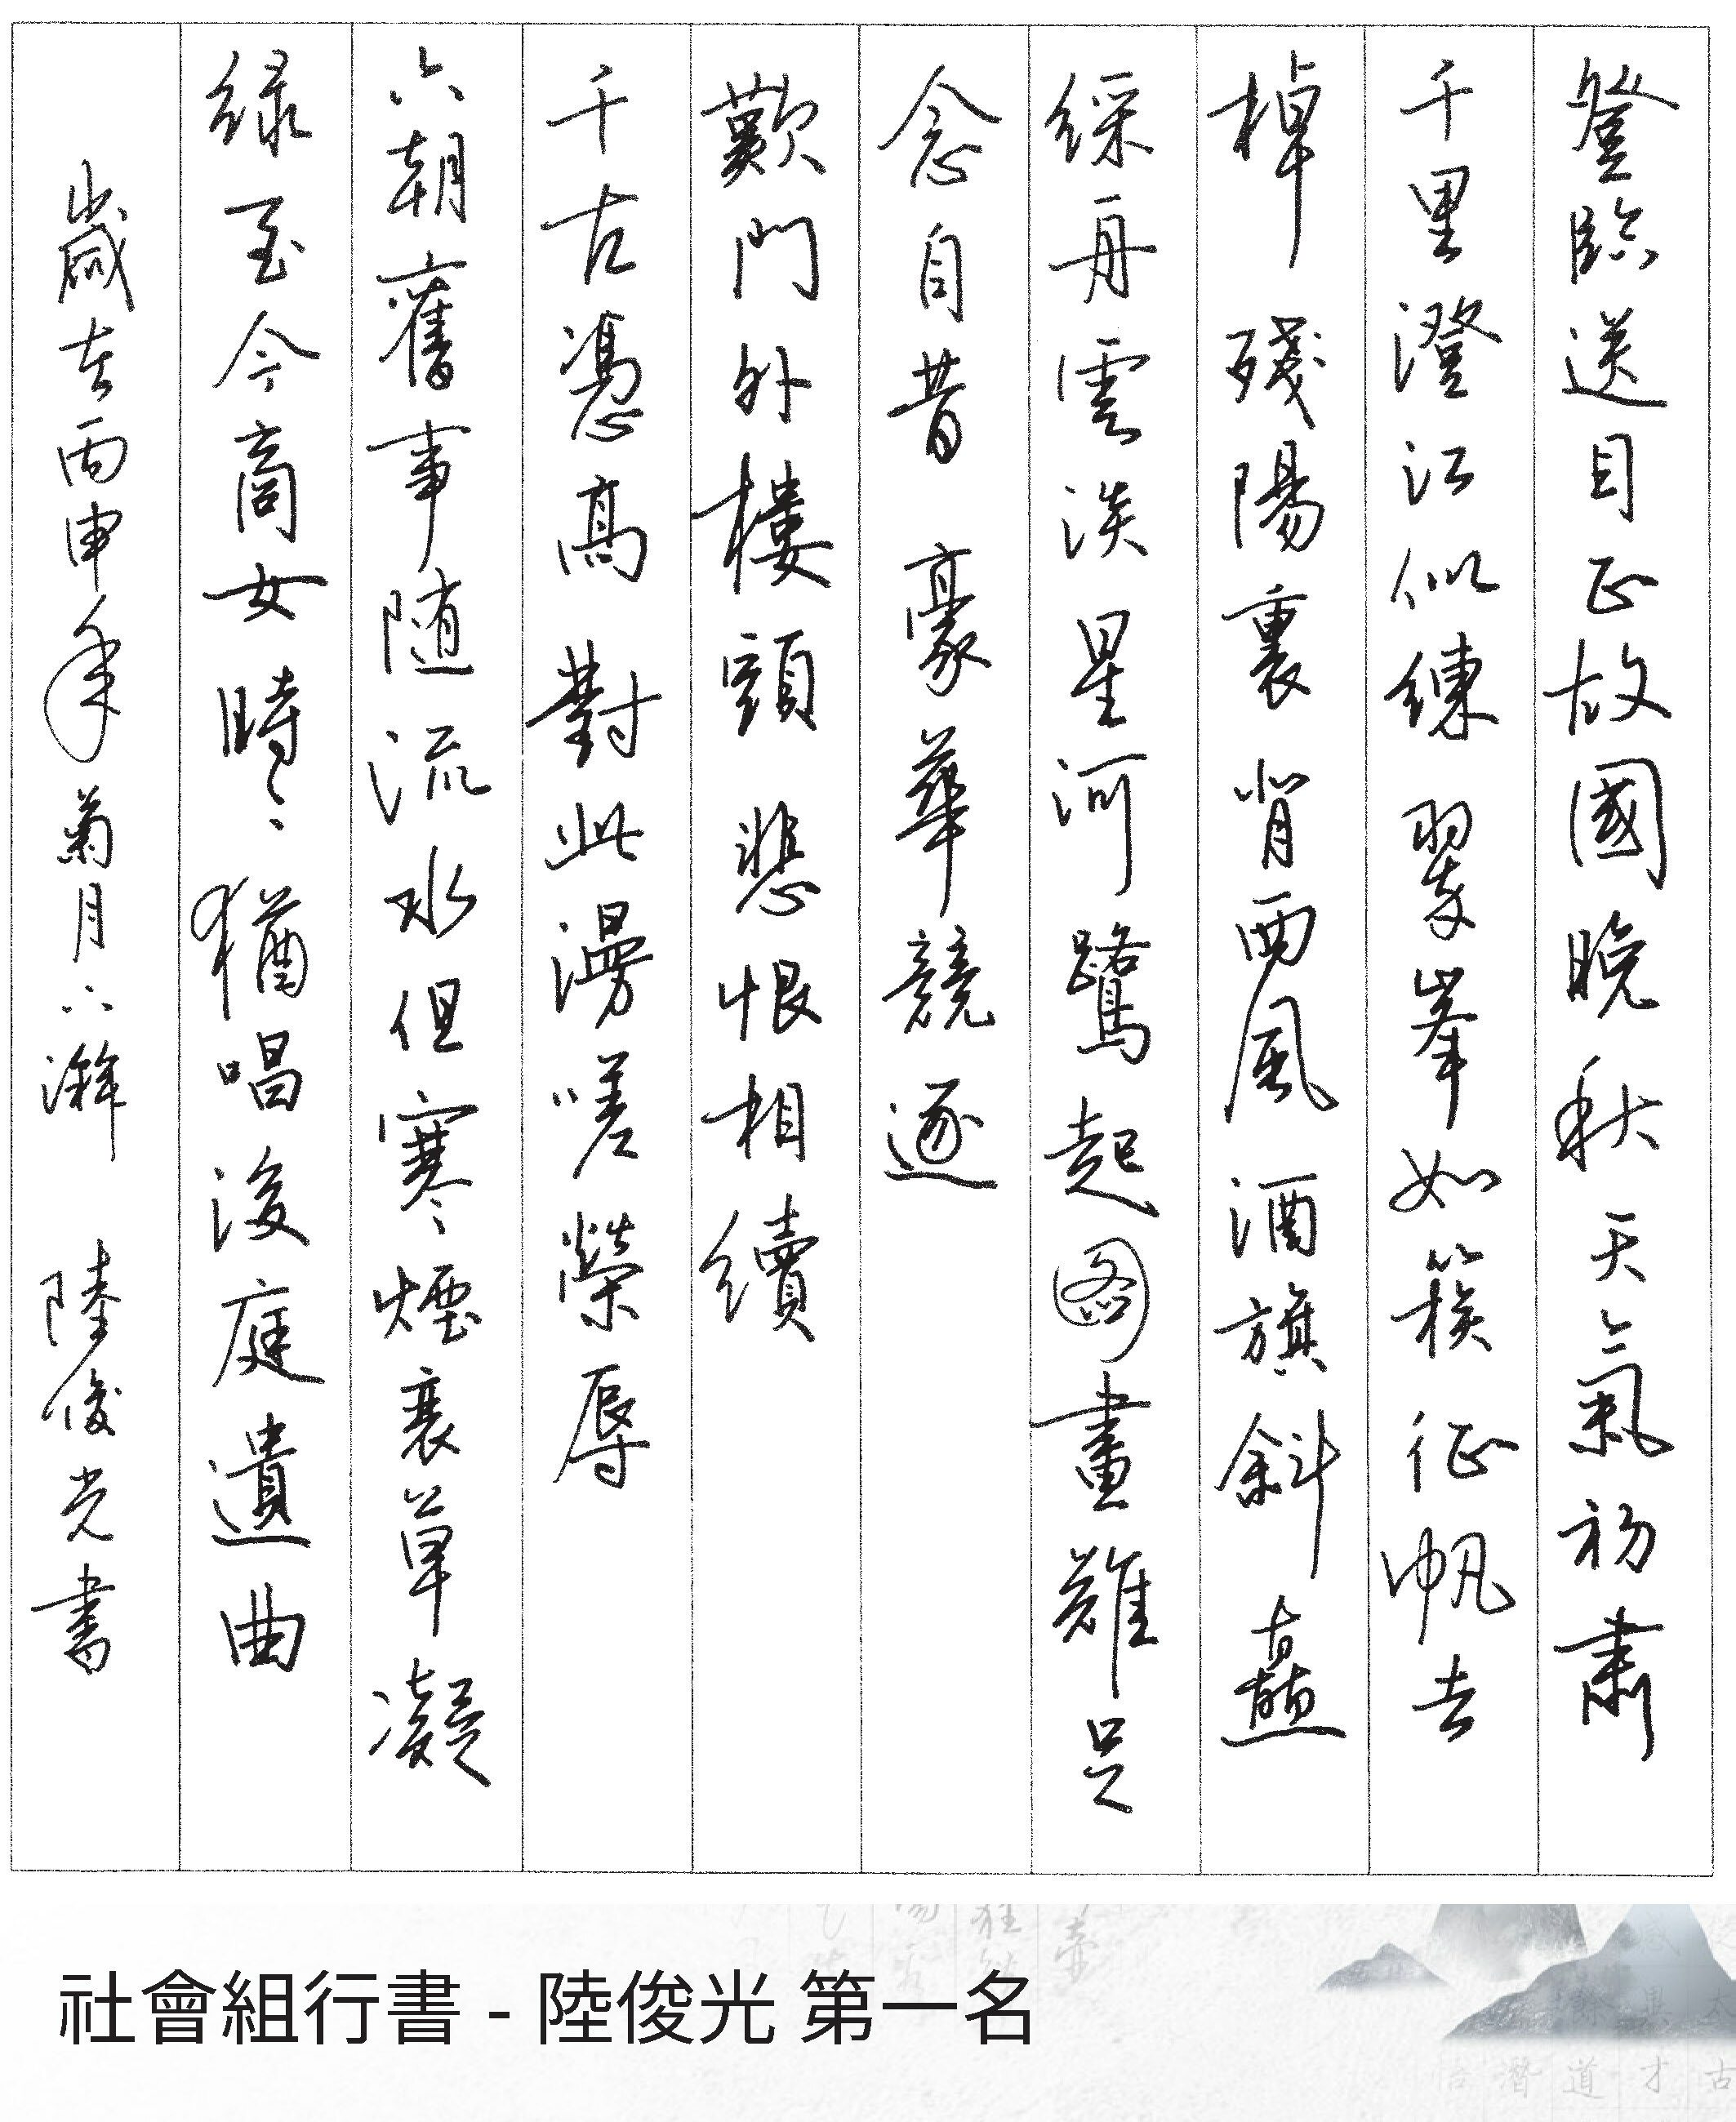 登臨送目正故國晚秋天氣初肅
千里澄江似練翠峯如簇征帆去
棹殘陽裏背西風酒旗斜矗
綵舟雲淡星河鷺起圖畫難足
念自昔豪華競逐
歎門外樓頭悲恨相續
千古憑高對此漫嗟榮辱
六朝舊事隨流水但寒煙衰草凝
綠至今商女時時猶唱後庭遺曲
歲在丙申年菊月下澣 陸俊光書
社會組行書 - 陸俊光 第一名